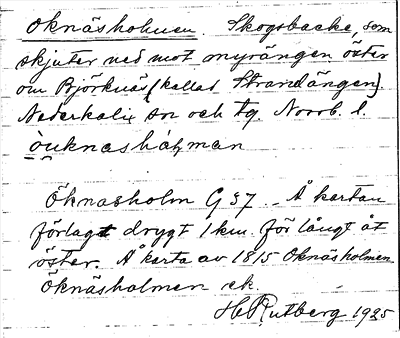 Öknäsholmen Skogsbacke, som
skjuter ned mot myrängen öster
om Björknäs (kallad Strandängen).
Nederkalix sn och tg. Norrb. l.
Öknasholm G 37. - Å kartan
förlagt drygt 1 km. för långt åt
öster. Å karta av 1815 Öknäsholmen
Öknäsholmen ek.
H Rutberg 1925